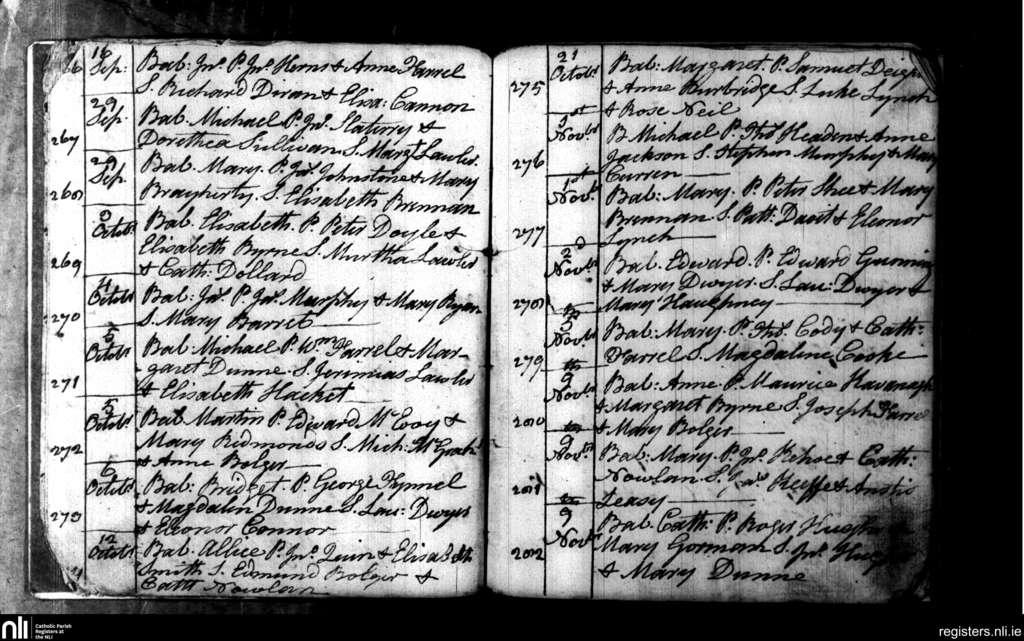 16
Sep. Bab: Jno. P. Jno. Herns & Anne Farrel
S. Richard Doran & Elisa: Cannon
29
Sep. Bab. Michael P. Jno. Slattery &
267 Dorothea Sullivan S. Margt. Lawler
29
Sep. Bab. Mary. P. Jas. Johnstone & Mary
268 S. Elisabeth Brennan
Octobr Bab. Elisabeth. P. Peter Doyle &
Elisabeth Byrne S. Murtha Lawler
269 & Cath: Dollard
4
Octobr Bab: Jas. P. Jas. Murphy & Mary Ryan
270 S. Mary Barret
5
Octobr Bab. Michael P. Wm. Farrel & Mar-
garet Dunne. S. Jeremias Lawler
271 & Elisabeth Hacket
5
Octobr Bab. Martin P. Edward McEvoy &
272 Mary Redmonds S. Mich: McGrath
& Anne Bolger
6
Octobr Bab: Bridget. P. George
& Magdalen Dunne S. Lau: Dwyer
273 & Eleonor Connor
12
Octobr Bab. Allice P. Jno. Quin & Elisabeth
Smith S. Edmund Bolger &
Cath Nowlan
21
Octobr Bab: Margaret. P. Samuel
275 & Anne Burbridge S. Luke Lynch
& Rose Neil
1st
Novbr B. Michael P. Thos. Headen & Anne
276 Jackson S. Stephen Murphy & Mary
Curren
1st
Novbr Bab: Mary. P. Peter Shee & Mary
Brennan S. Patt: David & Eleonor
277 Lynch
2d
Novbr Bab. Edward. P. Edward
& Mary Dwyer. S. Lau: Dwyer &
278 Mary
5th
Novbr Bab: Mary. P. Thos. Cody & Cath:
279 Farrel S. Magdaline Cooke
9th
Novbr Bab: Anne P. Maurice Kavenagh
& Margaret Byrne S. Joseph Farrel
280 & Mary Bolger
9th
Novbr Bab: Mary. P. Jno. Kehoe & Cath:
Nowlan S. Jas. Keeffe &
281 Leasy
9th
Novbr Bab. Cath: P. Roger Hughs
282 Mary Gorman S. Jno.
& Mary Dunne
nli Catholic Parish
Registers at
the NLI
registers.nli.ie